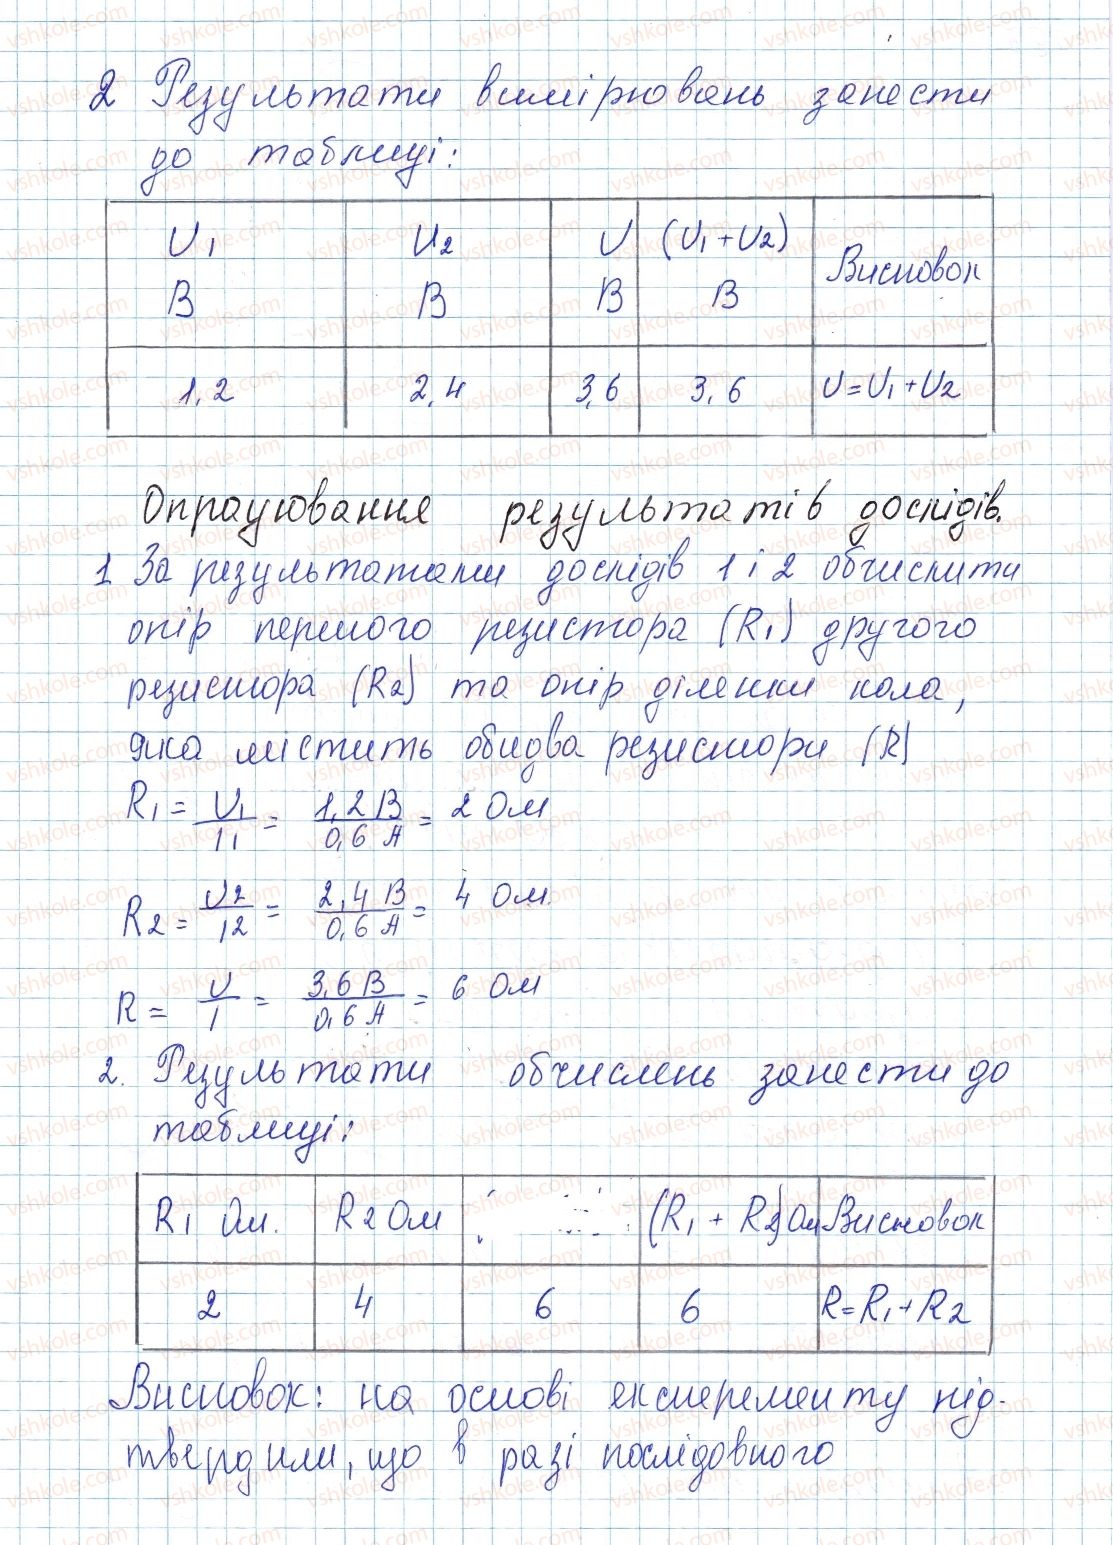 2 Результати вимірювань занести
до таблиці:
U1 U2 U (U1+U2) Висновок
В В В В
1,2 2,4 3,6 3,6 U=U1+U2
Опрацювання результатів дослідів.
1 За результатами дослідів 1 і 2 обчислити
опір першого резистора (R1) другого
резистора (R2) та опір ділянки кола,
яка містить обидва резистори (R)
R1 = U1/I1 = 1,2 В/0,6 А = 2 Ом
R2 = U2/I2 = 2,4 В/0,6 А = 4 Ом.
R = U/I = 3,6 В/0,6 А = 6 Ом
2. Результати обчислень занести до
таблиці:
R1 Ом. R2 Ом (R1 + R2) Ом Висновок
2 4 6 6 R=R1+R2
Висновок: на основі експеременту під-
твердили, що в разі послідовного
vshkole.com